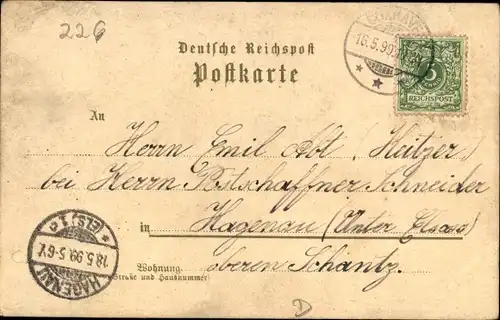 226
Deutsche Reichspost
Postkarte
16.5.99
5
REICHSPOST
An
Herrn Emil Abt (Heitzer)
bei Herrn Postschaffner Schneider
in Hagenau (Unter Elsass)
Wohnung oberen Schantz.
(Straße und Hausnummer)
HAGENAU
18.5.99.5-6V.
* (ELS.) 1. c
D